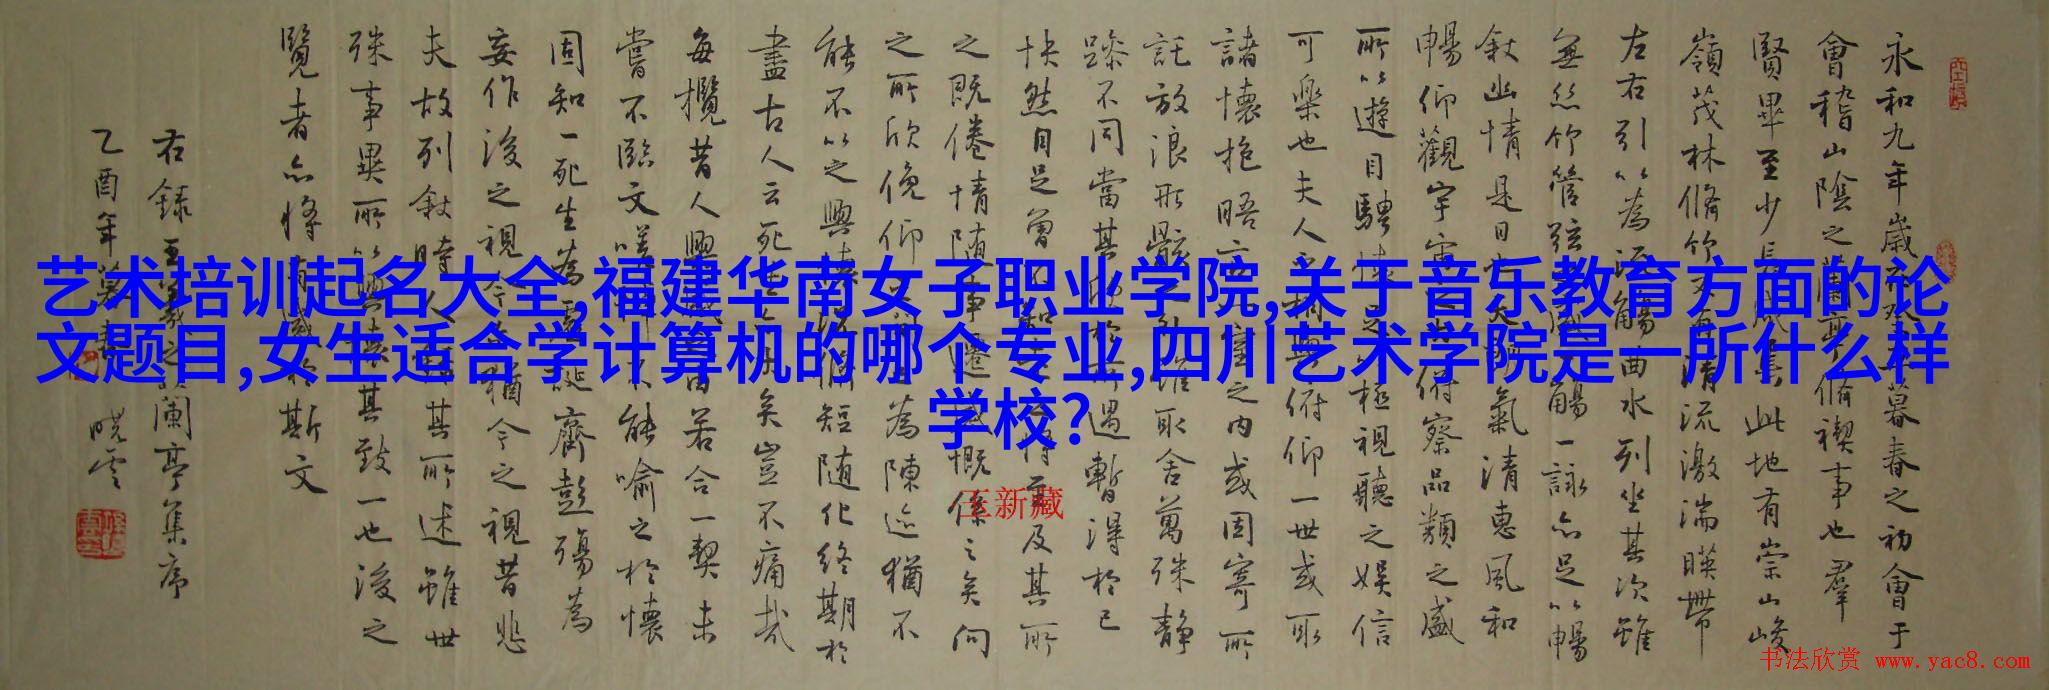 艺术培训起名大全,福建华南女子职业学院,关于音乐教育方面的论
文题目,女生适合学计算机的哪个专业,四川艺术学院是一所什么样
学校?
永和九年歲在癸丑暮春之初會于
會稽山陰之蘭亭脩禊事也羣
賢畢至少長咸集此地有崇山峻
嶺茂林脩竹又有清流激湍暎帶
左右引以為流觴曲水列坐其次雖
無絲竹管弦之盛一觴一詠亦足以暢
敘幽情是日也天朗氣清惠風和
暢仰觀宇宙之大俯察品類之盛
所以遊目騁懷足以極視聽之娛信
可樂也夫人之相與俯仰一世或取
諸懷抱晤言一室之內或因寄所
託放浪形骸之外雖取舍萬殊静
躁不同當其欣於所遇暫得於己
快然自足曾不知老之將至及其所
之既倦情随事遷感慨係之矣向
之所欣俛仰之間以為陳迹猶不
能不以之興懷況脩短随化終期於
盡古人云死生亦大矣豈不痛哉
每攬昔人興感之由若合一契未
嘗不臨文嗟悼不能喻之於懷
固知一死生為虛誕齊彭殤為
妄作後之視今亦猶今之視昔悲
夫故列敘時人錄其所述雖世
殊事異所以興懷其致一也後之
覽者亦將有感於斯文
右錄王羲之蘭亭集序
乙酉年
曉雲
王新藏
书法欣赏 www.yac8.com